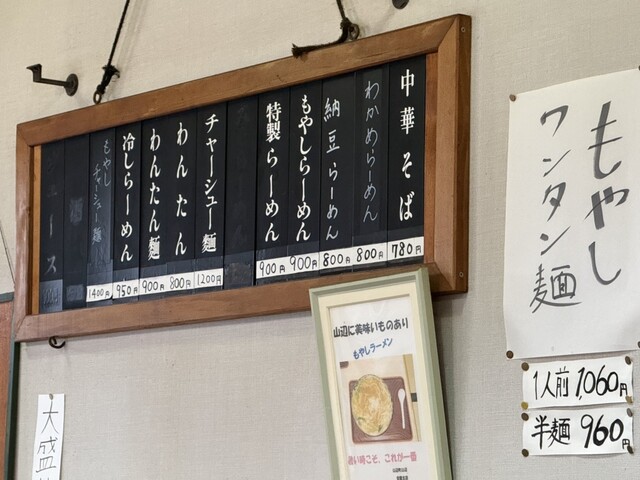 中華そば 780円
わかめらーめん 800円
納豆らーめん 800円
もやしらーめん 900円
特製らーめん 900円
チャーシュー麺 1200円
わんたん 800円
わんたん麺 900円
冷しらーめん 950円
もやしチャーシュー麺 1400円
ジュース
もやし
ワンタン麺
1人前 1,060円
半麺 960円
山辺に美味いものあり
もやしラーメン
暑い時こそ、これが一番
大盛